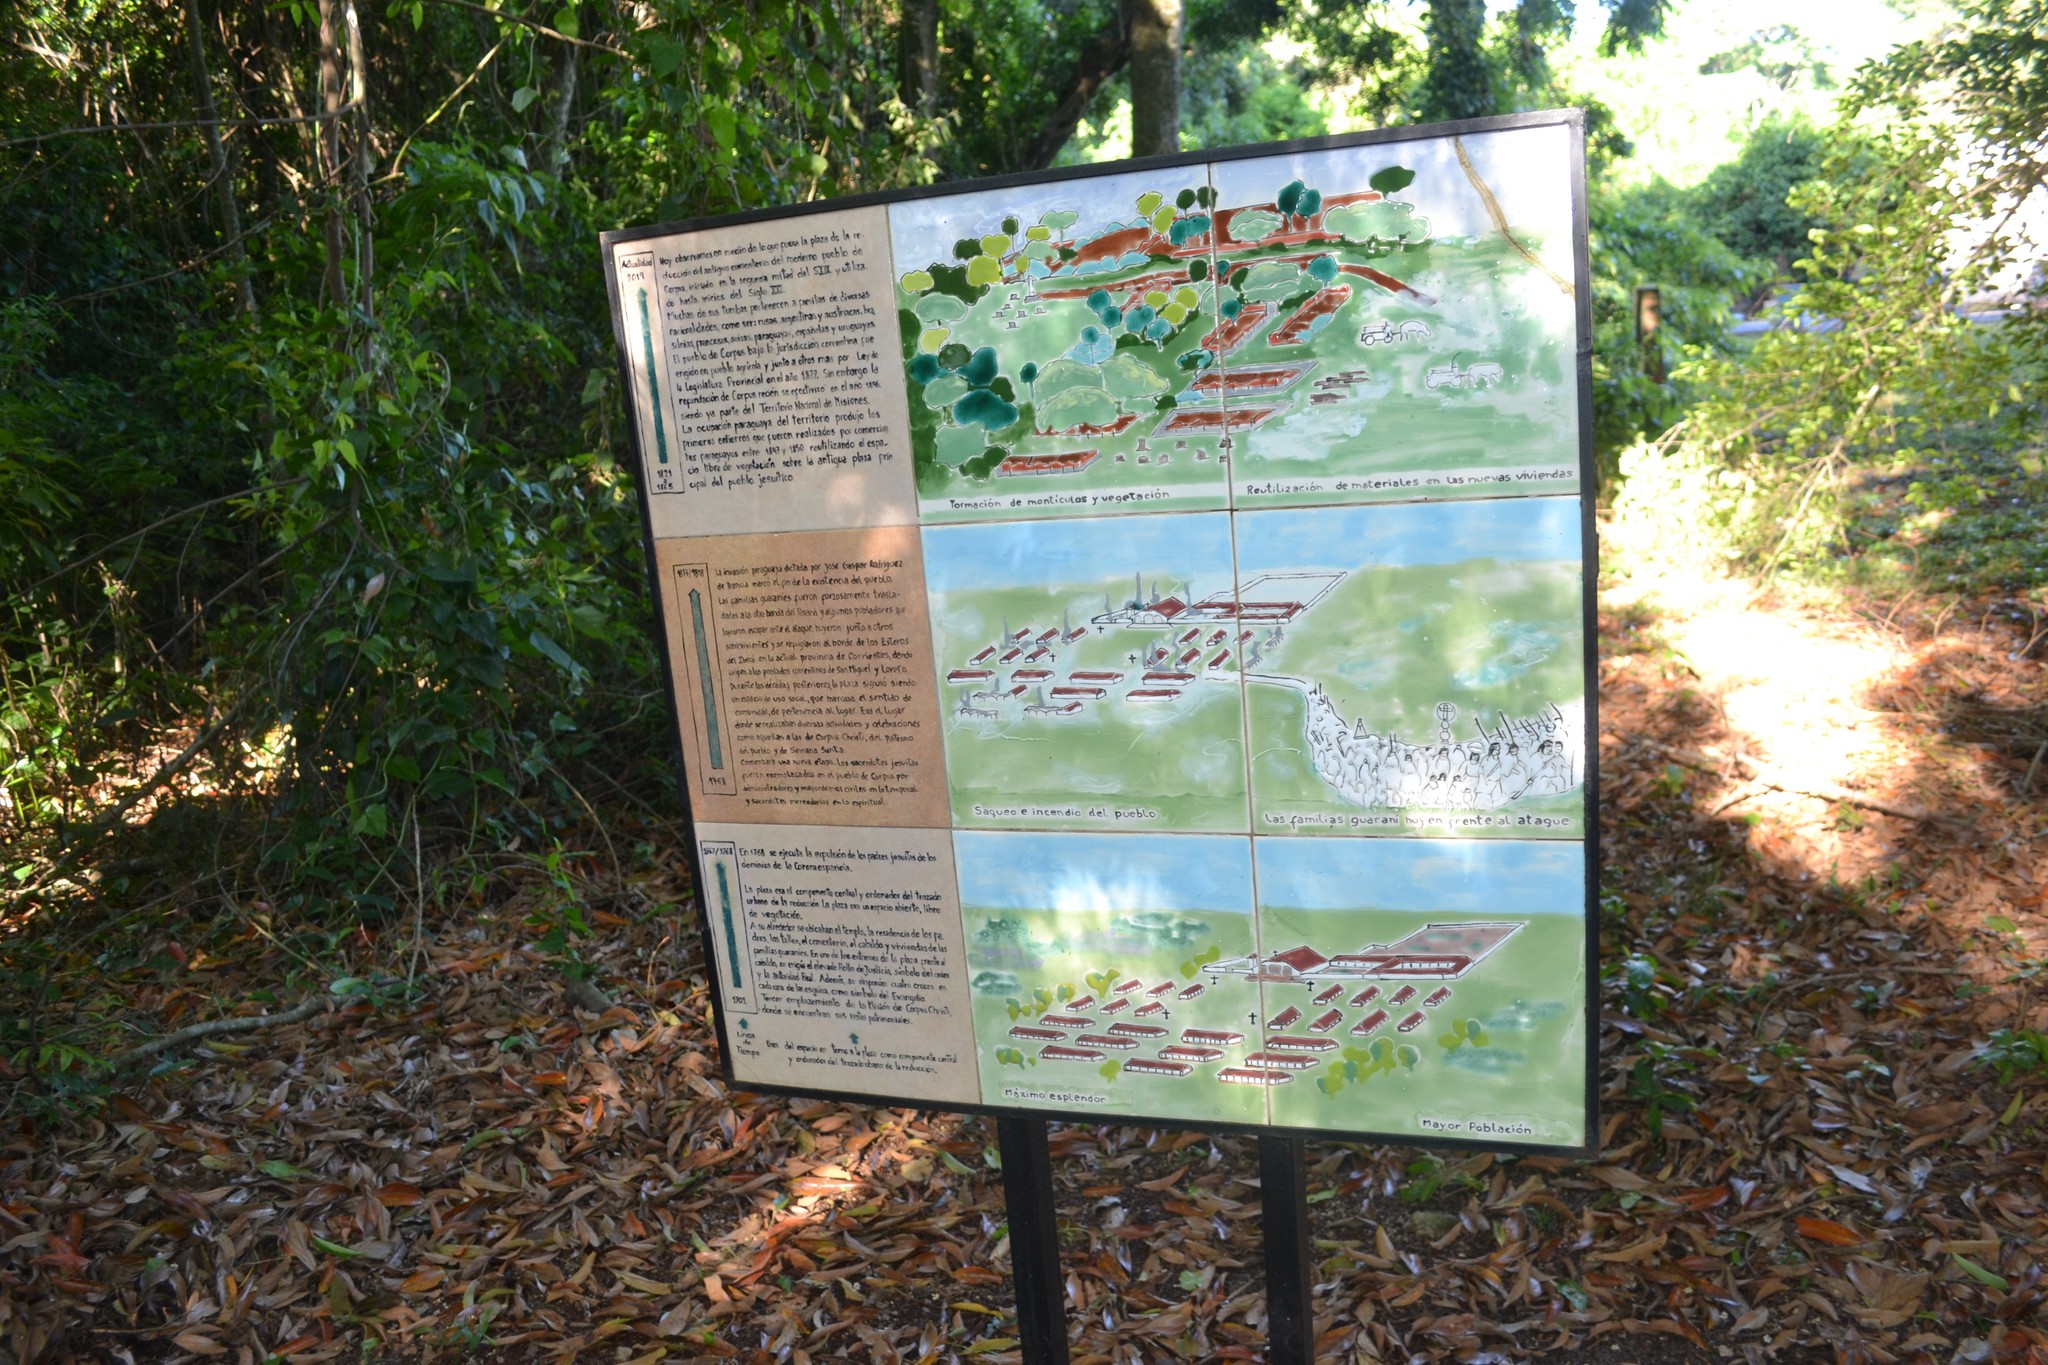 Actualidad
2019
1821
a
1865
Hoy observamos en medio de lo que fuera la plaza de la re-
ducción del antiguo cementerio del moderno pueblo de
Corpus, iniciado en la segunda mitad del S.XIX y utiliza-
do hasta inicios del Siglo XXI.
Muchas de sus tumbas pertenecen a familias de diversas
nacionalidades, como ser: rusas, argentinas y austriacas, bra
silenas, francesas, suizas, paraguayas, españolas y uruguayas.
El pueblo de Corpus bajo la jurisdicción correntina fue
erigido en pueblo agrícola y junto a otros mas por Ley de
la Legislatura Provincial en el año 1877. Sin embargo la
refundación de Corpus recién se efectivizó en el año 1896
siendo ya parte del Territorio Nacional de Misiones.
La ocupación paraguaya del territorio produjo los
primeros entierros que fueron realizados por comercian
tes paraguayos entre 1847 y 1850 reutilizando el espa-
cio libre de vegetación sobre la antigua plaza prin
cipal del pueblo jesuítico.
Formación de montículos y vegetación
Reutilización de materiales en las nuevas viviendas
1768
La invasión paraguaya dictada por José Gaspar Rodríguez
de Francia marcó el fin de la existencia del pueblo.
Las familias guaraníes fueron forzosamente trasla-
dadas a la otra banda del Paraná y algunos pobladores que
lograron escapar ante el ataque, huyeron junto a otros
sobrevivientes y se refugiaron al borde de los Esteros
del Iberá en la actual provincia de Corrientes, dando
origen a los poblados correntinos de San Miguel y Loreto.
Durante las décadas posteriores la plaza siguió siendo
un espacio de uso social, que marcaba el sentido de
comunidad, de pertenencia al lugar. Era el lugar
donde se realizaban diversas actividades y celebraciones
como aquellas a las de Corpus Christi, del Patrono
del pueblo y de Semana Santa.
Comenzará una nueva etapa. Los sacerdotes jesuitas
fueron reemplazados en el pueblo de Corpus por
administradores y mayordomos civiles en lo temporal
y sacerdotes mercedarios en lo espiritual.
Saqueo e incendio del pueblo
Las familias guaraní huyen frente al ataque
1767/1768
1701
Linea
de
Tiempo
En 1768 se ejecuta la expulsión de los padres jesuitas de los
dominios de la Corona española.
La plaza era el componente central y ordenador del trazado
urbano de la reducción. La plaza era un espacio abierto, libre
de vegetación.
A su alrededor se ubicaban el templo, la residencia de los pa-
dres, los taller, el cementerio, el cabildo y viviendas de las
familias guaraníes. En uno de los extremos de la plaza frente al
cabildo, se erigía el elevado Rollo de Justicia, símbolo del orden
y la autoridad Real. Además, se disponían cuatro cruces en
cada una de las esquinas, como símbolo del Evangelio.
Tercer emplazamiento de la Misión de Corpus Christi,
donde se encuentran sus restos patrimoniales.
Usos del espacio en torno a la plaza como componente central
y ordenador del trazado urbano de la reducción.
Máximo esplendor
Mayor Población